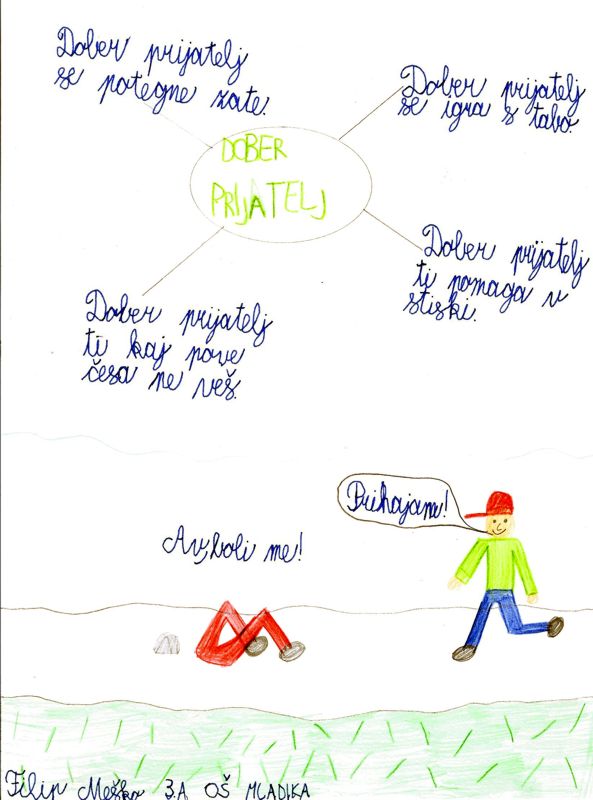 Dober prijatelj
se potegne zate.
Dober prijatelj
se igra s tabo.
DOBER
PRIJATELJ
Dober prijatelj
ti pomaga v
stiski.
Dober prijatelj
ti kaj pove
česa ne veš.
Prihajam!
Av, boli me!
Filip Meško 3.A OŠ MLADIKA